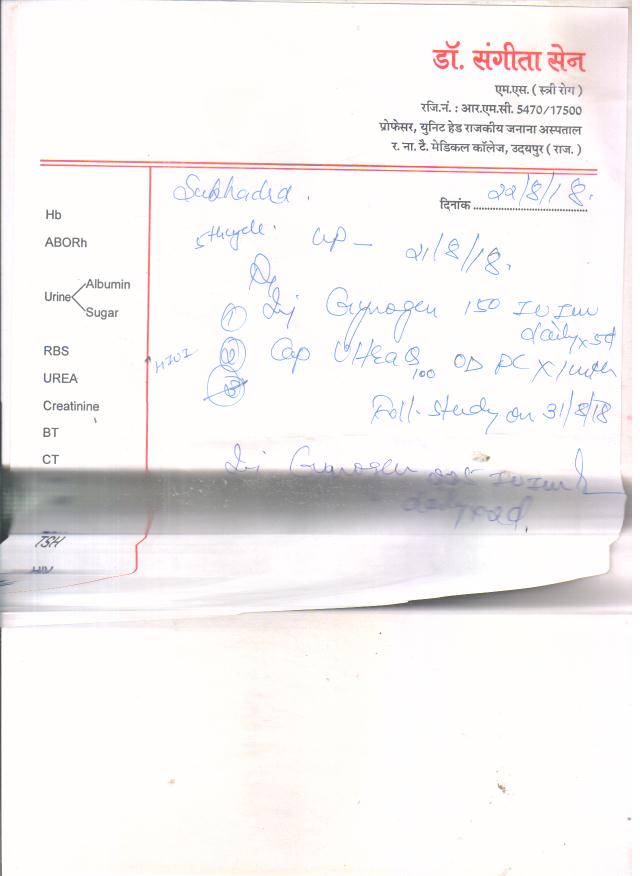 डॉ. संगीता सेन
एम.एस. ( स्त्री रोग )
रजि.नं. : आर.एम.सी. 5470/17500
प्रोफेसर, युनिट हेड राजकीय जनाना अस्पताल
र. ना. टै. मेडिकल कॉलेज, उदयपुर ( राज. )
Subhadra .
दिनांक 22/8/18.
5thcycle. LMP — 21/8/18.
Hb
ABORh
Urine
Albumin
Sugar
RBS
UREA
Creatinine
BT
CT
TSH
HIV
Rx
① Inj Gynogen 150 IU Im daily x 5d
② Cap UHEAQ 100 OD PC X
③
Foll. Study on 31/8/18
Inj Gynogen 225 IU Im
daily x 2d.